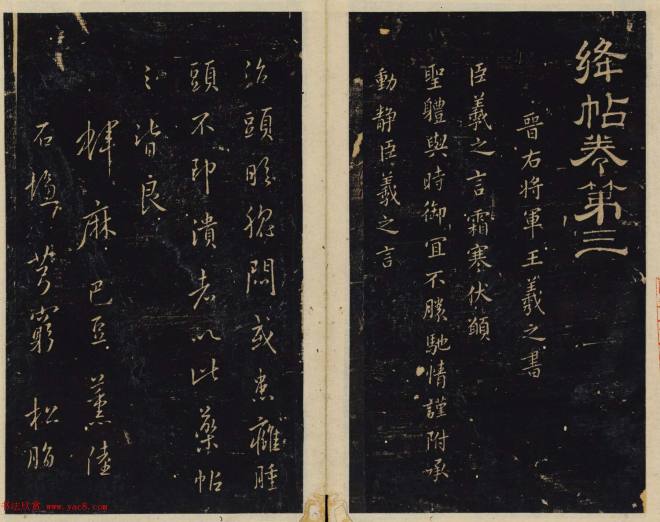 絳帖卷第三
晉右將軍王羲之書
臣羲之言霜寒伏願
聖體與時御宜不勝馳情謹附承
動靜臣羲之言
治頭眩悶或患癰腫
頭不即潰者以此藥帖
之皆良
麻 巴豆 薰陸
石鹽 芎藭 松脂
书法欣赏 www.yac8.com